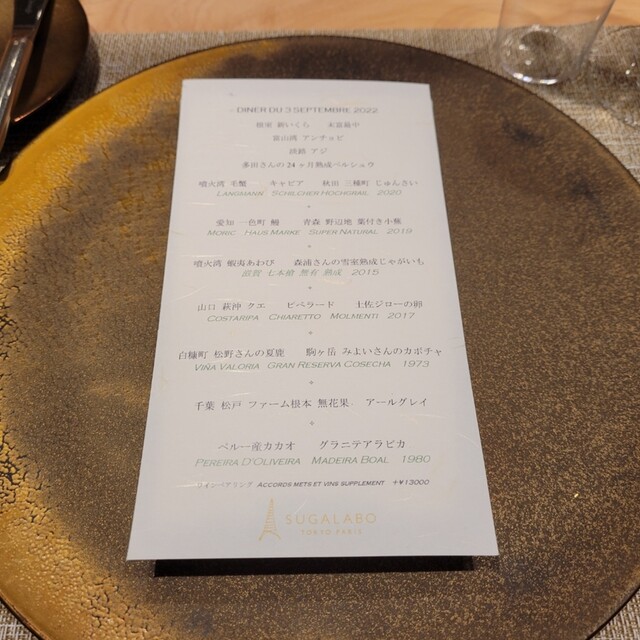 DINER DU 3 SEPTEMBRE 2022
根室 新いくら 末富最中
富山湾 アンチョビ
淡路 アジ
多田さんの24ヶ月熟成ペルシュウ
噴火湾 毛蟹 キャビア 秋田 三種町 じゅんさい
LANGMANN SCHILCHER HOCHGRAIL 2020
愛知 一色町 鰻 青森 野辺地 葉付き小蕪
MORIC HAUS MARKE SUPER NATURAL 2019
噴火湾 蝦夷あわび 森浦さんの雪室熟成じゃがいも
滋賀 七本槍 無有 熟成 2015
山口 萩沖 クエ ピペラード 土佐ジローの卵
COSTARIPA CHIARETTO MOLMENTI 2017
白糠町 松野さんの夏鹿 駒ヶ岳 みよいさんのカボチャ
VIÑA VALORIA GRAN RESERVA COSECHA 1973
千葉 松戸 ファーム根本 無花果 アールグレイ
ペルー産カカオ グラニテアラビカ
PEREIRA D'OLIVEIRA MADEIRA BOAL 1980
ワインペアリング ACCORDS METS ET VINS SUPPLEMENT +¥13000
SUGALABO
TOKYO PARIS